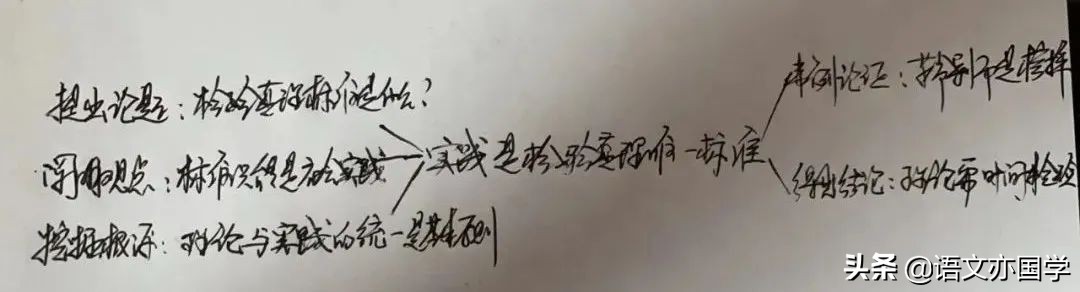 提出论题：检验真理标准是什么？
阐明观点：标准只能是社会实践
挖掘根源：理论与实践的统一是基本原则
实践是检验真理唯一标准
举例论证：革命导师是榜样
得出结论：理论需时间检验
头条 @语文亦国学